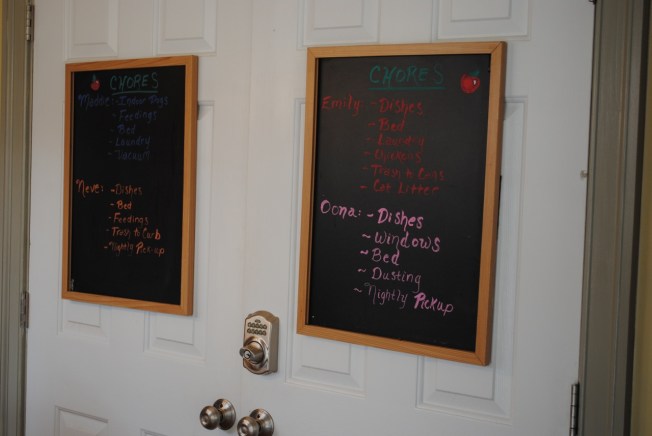 CHORES
Indoor Dogs
- Feedings
- Bed
- Laundry
Neve: - Dishes
- Bed
- Feedings
- Trash to Curb
- Nightly Pick-up
CHORES
Emily: - Dishes
- Bed
- Laundry
- Chickens
- Trash to Curb
- Cat Litter
Oona: - Dishes
~ Windows
~ Bed
~ Dusting
~ Nightly Pickup